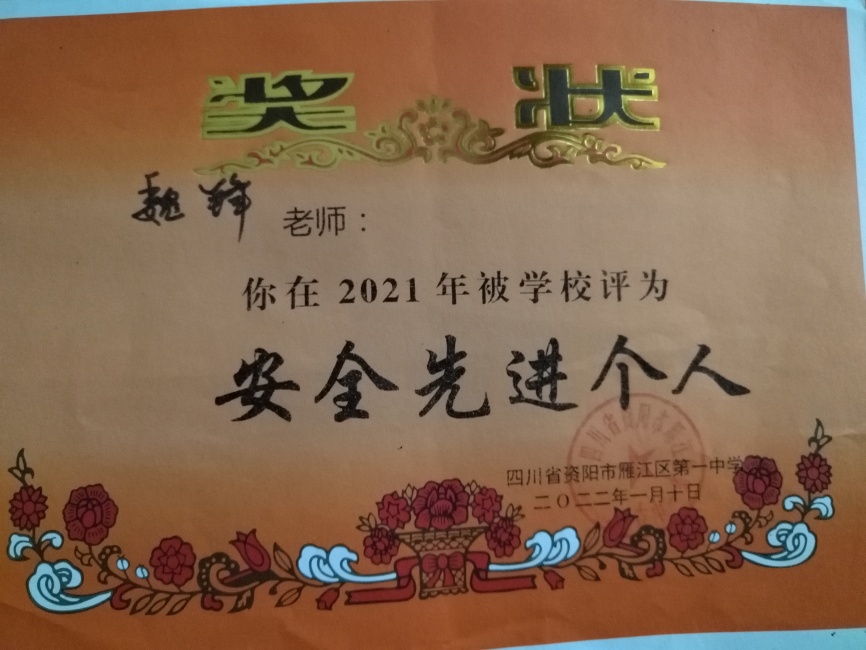 奖状
魏 老师：
你在 2021 年被学校评为
安全先进个人
四川省资阳市雁江区第一中学
二〇二二年一月十日